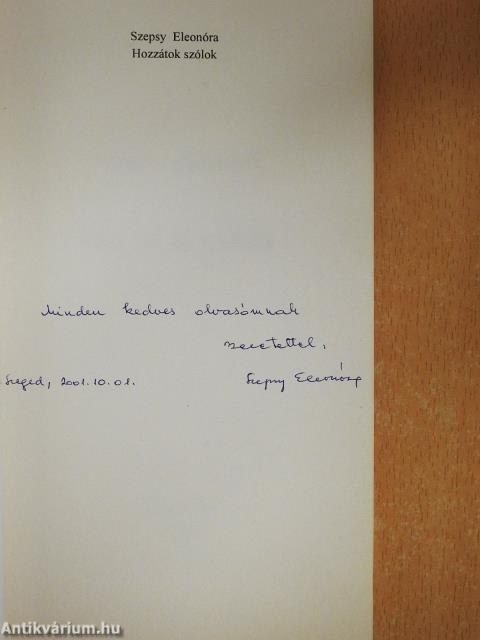 Szepsy Eleonóra
Hozzátok szólok
Minden kedves olvasómnak
szeretettel,
Szeged, 2001.10.01. Szepsy Eleonóra
Antikvárium.hu